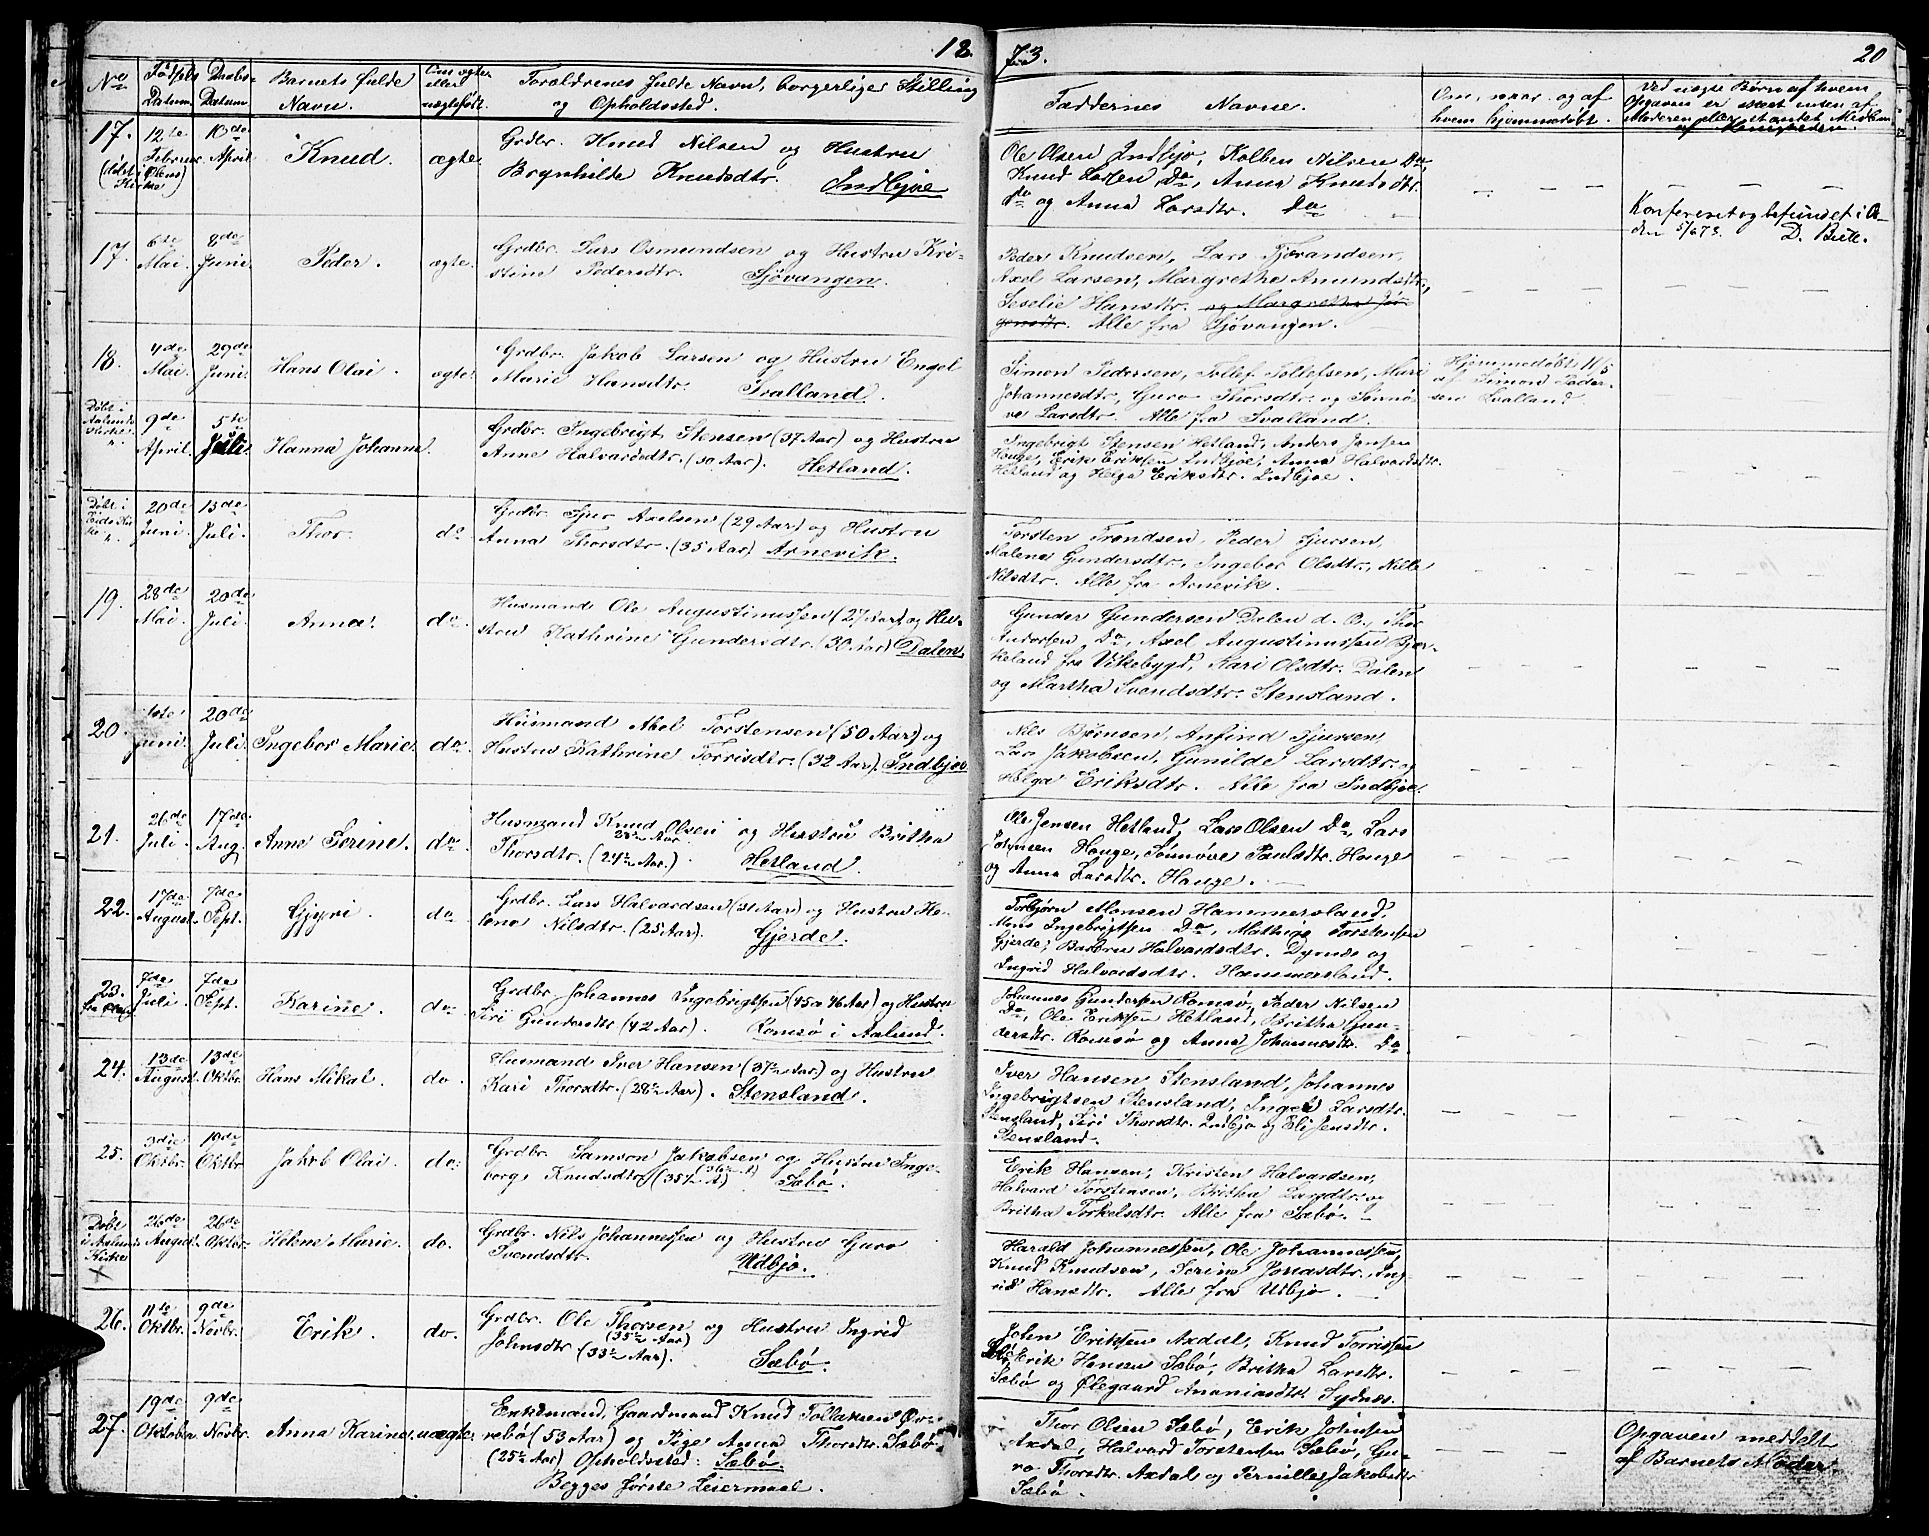 18 73. 20
No
Fødsels Datum.
Daabs- Datum
Barnets fulde Navn.
Om ægte eller uægtefødt.
Forældrenes fulde Navn, borgerlige Stilling og Opholdssted.
Faddernes Navne.
Om, naar og af hvem hjemmedøbt.
Ved uægte Børn af hvem Opgaven er skeet enten af Moderen eller et andet Medlem af Menigheden.
17. 12te Februar. 13de April. Knud. ægte.
Grdbr. Knud Nilsen og Hustru
Brynhilde Knudsdtr. Indbjoe
Ole Olsen Indbjo, Kolben Nilsen Do,
Knud Larsen Do, Anna Knudsdtr.
Do og Anna Larsdtr. Do
Konfereret og befundet i Or-
den 5/6 73. D. Bull.
17. 6te Mai. 8de Juni. Peder. ægte.
Grdbr. Lars Osmundsen og Hustru Kri-
stine Pedersdtr. Sjøvangen.
Peder Knudsen, Lars Tjørandsen,
Axel Larsen, Margrethe Amundsdtr.,
Seselie Hansdtr. og Margrethe Jør-
gensdtr. Alle fra Sjøvangen.
18. 4de Mai. 29de Juni. Hans Olai. ægte.
Grdbr. Jakob Larsen og Hustru Engel
Marie Hansdtr. Svalland.
Simon Pedersen, Tollef Tollefsen, Mari
Johannesdtr, Guro Thorsdtr. og Sønnø-
ve Larsdtr. Alle fra Svalland.
Hjemmedøbt 11/5
af Simon Peder-
sen Svalland.
Døbt i Aalunds Kirke. 9de April. 5te Juli. Hanna Johanne.
Grdbr. Ingebrigt Stensen (37 Aar) og Hustru
Anne Halvardsdtr. (30 Aar). Hetland.
Ingebrigt Stensen Hetland, Anders Jansen
Houge, Erik Eriksen Indbjoe, Anna Halvardsdtr.
Hetland og Helga Eriksdtr. Indbjoe.
Døbt i 20de Juni. 13de Juli. Thor. do
Grdbr. Sjur Axelsen (29 Aar) og Hustru
Anna Thorsdtr. (35 Aar) Arnevik.
Torsten Trondsen, Peder Sjursen,
Malene Gundersdtr., Ingebor Olsdtr., Nille
Nilsdtr. Alle fra Arnevik.
19. 28de Mai. 20de Juli. Anna. do.
Husmand Ole Augustinussen (27 Aar) og Hu-
stru Kathrine Gundersdtr. (30 Aar) Dalen.
Gunder Gundersen Dalen d. æ., Thor
Andersen Do, Axel Augustinussen Bjør-
keland fra Vikebygd, Kari Olsdtr. Dalen
og Martha Svendsdtr. Stensland.
20. Juni. 20de Juli. Ingebor Marie. do.
Husmand Axel Torstensen (50 Aar) og
Hustru Kathrine Torrisdtr. (32 Aar). Indbjoe
Nils Bjørnsen, Anfind Sjursen
Lars Jakobsen, Gunilde Larsdtr. og
Helga Eriksdtr. Alle fra Indbjoe.
21. 26de Juli. 17de Aug. Anne Serine. do.
Husmand Knud Olsen og Hustru Britha
Thorsdtr. (24½ Aar.) Hetland.
Ole Jensen Hetland, Lars Olsen Do, Lars
Johnsen Houge, Sønnøve Paulsdtr. Houge
og Anna Larsdtr. Hauge.
22. 17de August. 7de Sept. Gjyri. do
Grdbr. Lars Halvardsen (31 Aar) og Hustru He-
lene Nilsdtr. (25 Aar). Gjerde.
Torbjørn Monsen Hammersland,
Mons Ingebrigtsen Do, Mathias Torstensen
Gjerde, Barbru Halvardsdtr. Dymde og
Ingrid Halvardsdtr. Hammersland.
23. 7de Juli. 7de Sept. Karine. do.
Grdbr. Johannes Ingebrigtsen (45 a 46 Aar) og Hustru
Siri Gundersdtr (42 Aar). Romsø i Aalund.
Johannes Gundersen Romsø, Peder Nilsen
Do, Ole Eriksen Hetland, Britha Gun-
dersdtr. Romsø og Anna Johannesdtr. Do
24. 13de August. 13de Oktbr. Hans Mikal. do.
Husmand Iver Hansen (37½ Aar) og Hustru
Kari Thorsdtr. (28½ Aar). Stensland.
Iver Hansen Stensland, Johannes
Ingebrigtsen Stensland, Inger Larsdtr.
Stensland, Siri Thorsdtr. Indbjo og Elisensdtr.
Stensland.
25. 3die Oktbr. 19de Oktbr Jakob Olai. do.
Grdbr. Samson Jakobsen (36½ A) og Hustru Inge-
borg Knudsdtr (35½ A) Sæbø.
Erik Hansen, Kristen Halvardsen,
Halvard Torstensen, Britha Larsdtr. og
Britha Torkelsdtr. Alle fra Sæbø.
Døbt i Aalunds Kirke 26de August. 26de Oktbr. Helene Marie. do.
Grdbr. Nils Johannessen og Hustru Guro
Svendsdtr. Udbjo.
Harald Johannessen, Ole Johannessen,
Knud Knudsen, Serine Jonasdtr., Ing-
rid Hansdtr. Alle fra Utbjo.
26. 11te Oktbr. 9de Novbr. Erik. do.
Grdbr. Ole Thorsen (35½ Aar) og Hustru Ingrid
Johnsdtr (33½ Aar). Sæbø.
John Eriksen Axdal, Knud Torrissen
Sæbø, Erik Hansen Sæbø, Britha Larsdtr.
Sæbø og Ølegaard Ananiasdtr. Sydnes.
27. 19de Oktober 9de Novbr. Anna Karine. uægte.
Enkemand, Gaardmand Knud Tollaksen Øv-
rebø (53 Aar) og Pige Anna Thorsdtr. Sæbø
(25½ Aar) Opholdssted: Sæbø.
Begges første Leiermaal.
Thor Olsen Sæbø, Erik Johnsen
Axdal, Halvard Torstensen Sæbø, Gu-
ro Thorsdtr. Axdal og Pernille Jakobsdtr
Sæbø.
Opgaven meddelt
af Barnets Moder.